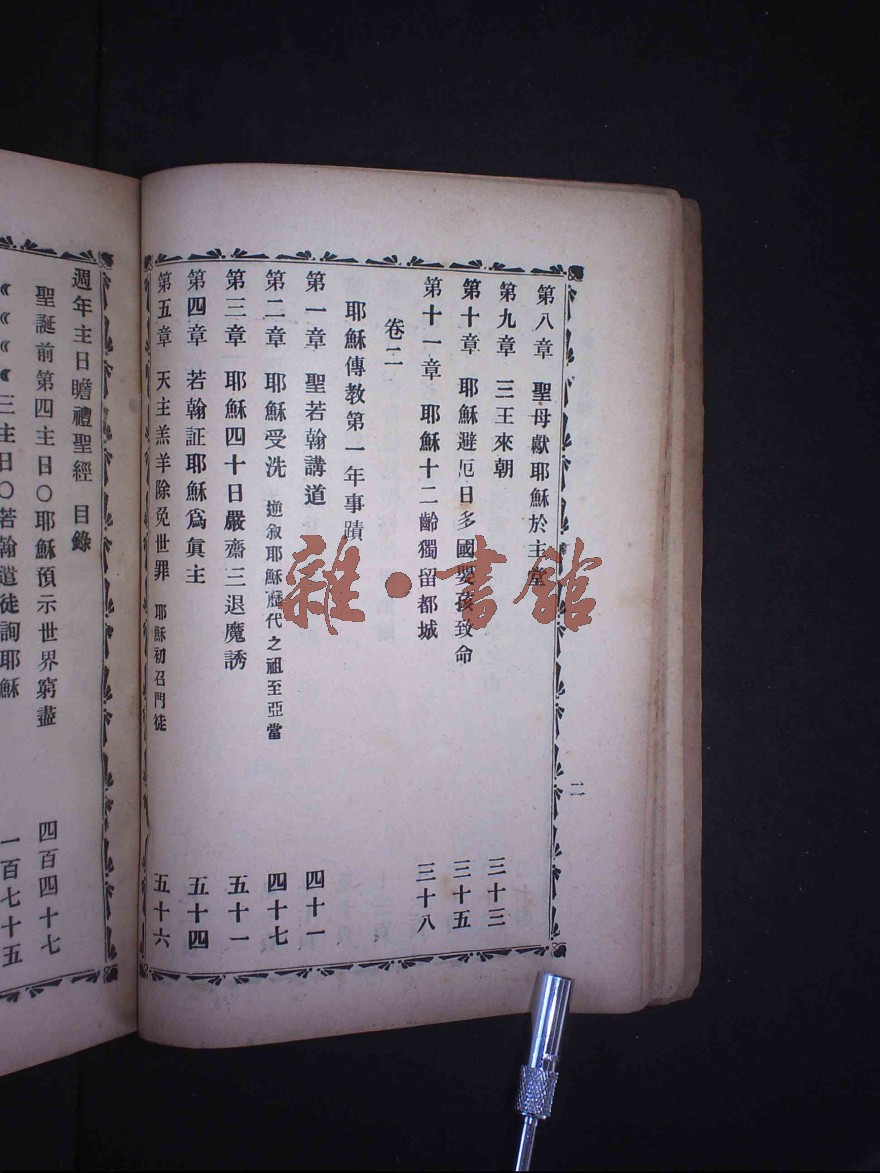 第八章 聖母獻耶穌於主堂
第九章 三王來朝 三十三
第十章 耶穌避厄日多國嬰孩致命 三十五
第十一章 耶穌十二齡獨留都城 三十八
卷二
耶穌傳教第一年事蹟
第一章 聖若翰講道 四十一
第二章 耶穌受洗 逆叙耶穌歷代之祖至亞當 四十七
第三章 耶穌四十日嚴齋三退魔誘 五十一
第四章 若翰証耶穌爲眞主 五十四
第五章 天主羔羊除免世罪 耶穌初召門徒 五十六
二
週年主日瞻禮聖經 目錄
聖誕前第四主日〇耶穌預示世界窮盡 四百四十七
三主日〇若翰遣徒詢耶穌 一百七十五
雜·書館